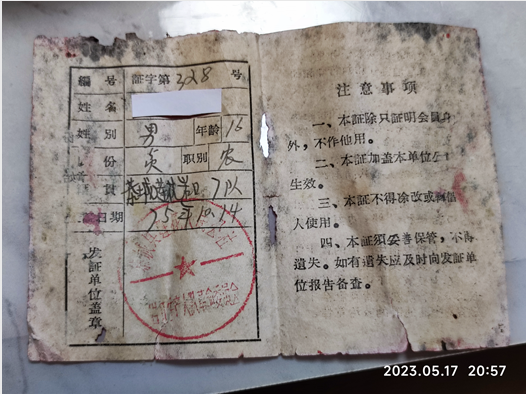 編号 証字第328号
姓名
性别 男 年齡 16
份 贫 职别 农
日期 75年10.14
发証单位盖章
注意事項
一、本証除只証明会員身
外，不作他用。
二、本証加盖本单位公
生效。
三、本証不得涂改或轉借
人使用。
四、本証須妥善保管，不得
遺失。如有遺失应及时向发証单
位报告备查。
2023.05.17 20:57